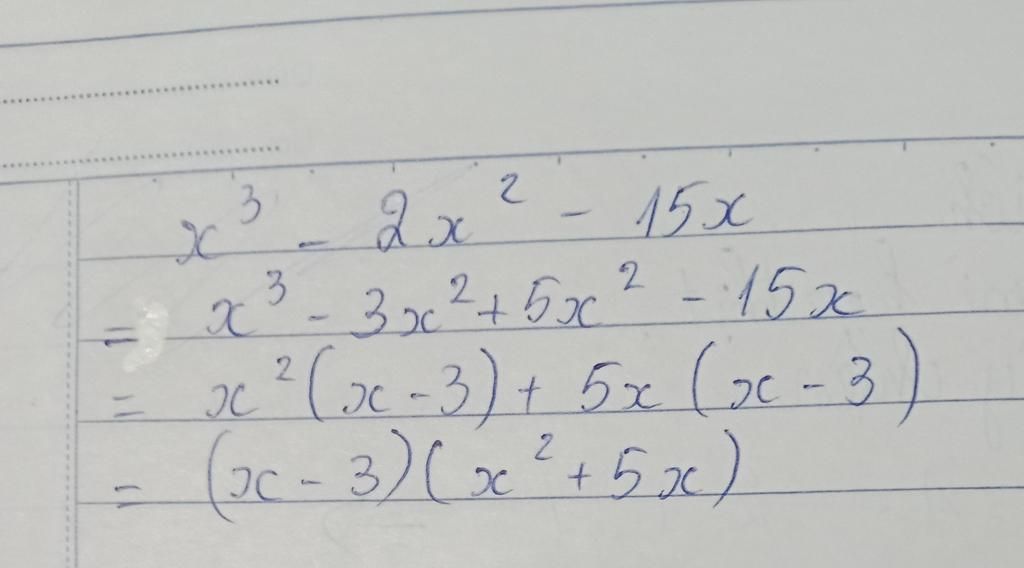 x³ - 2x² - 15x
= x³ - 3x² + 5x² - 15x
= x²(x - 3) + 5x(x - 3)
= (x - 3)(x² + 5x)